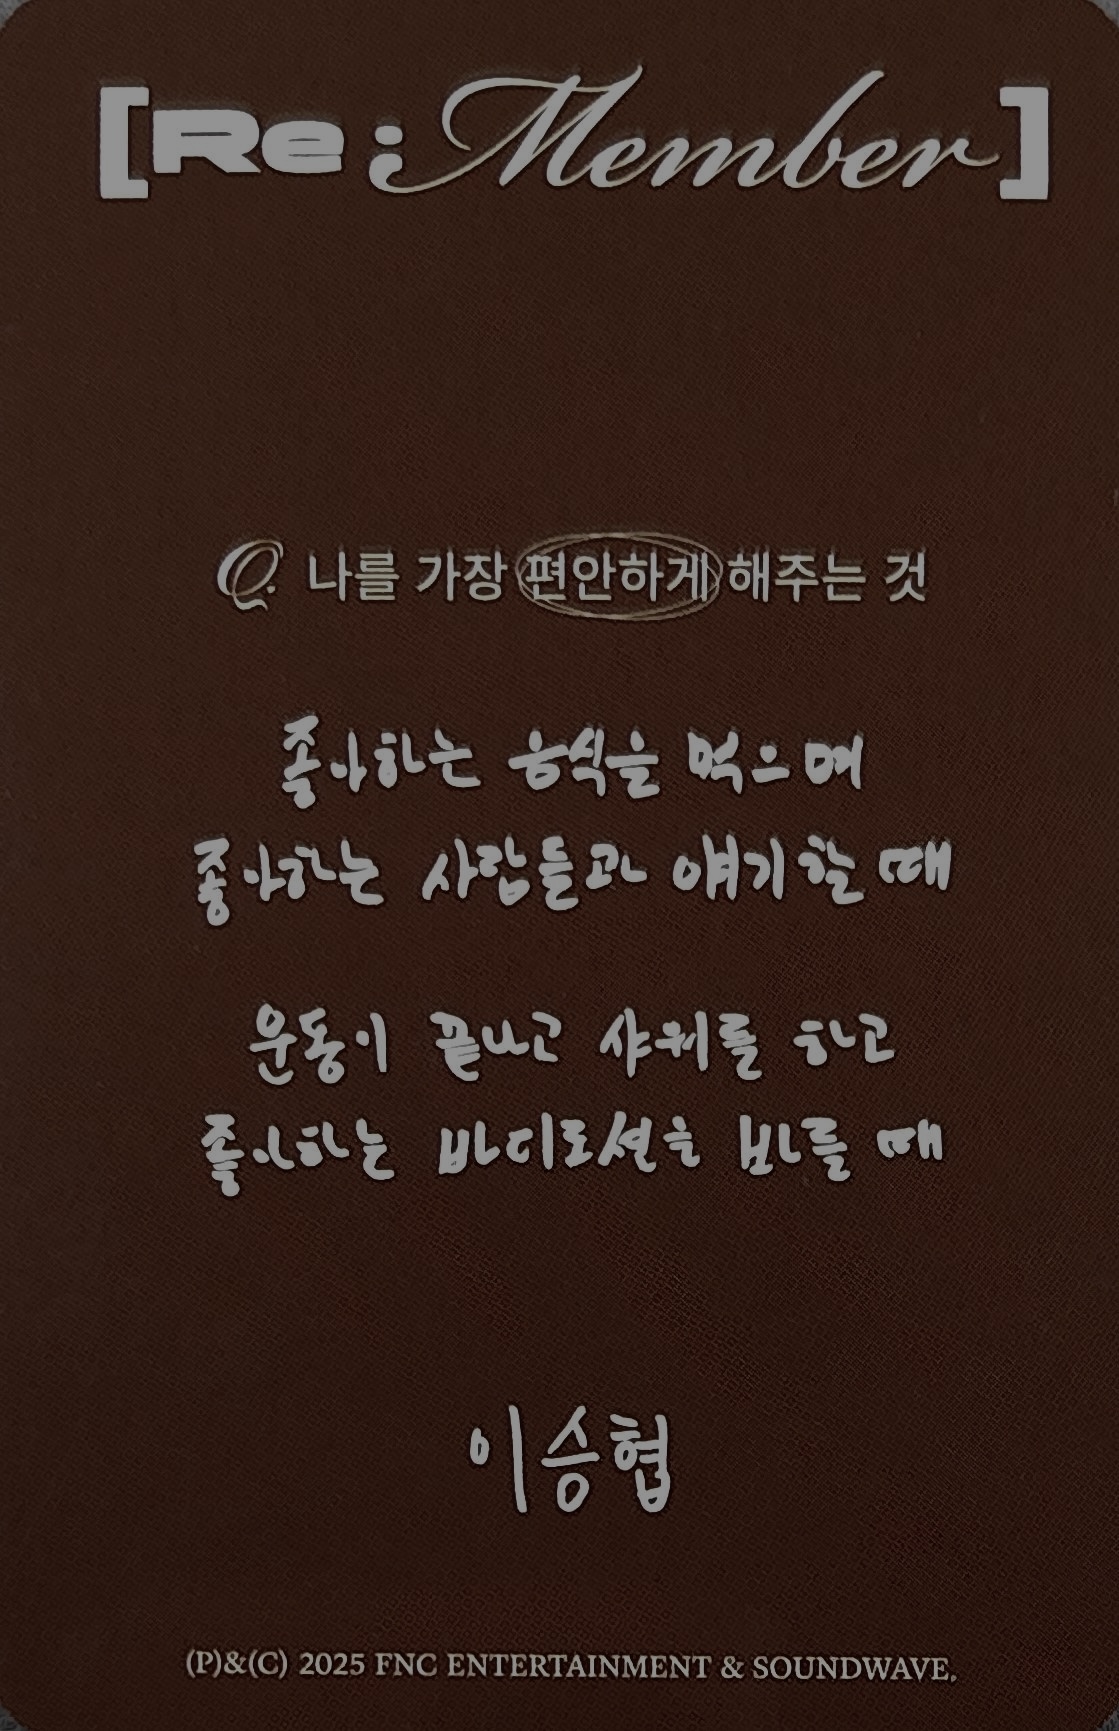 [Re:Member]
Q. 나를 가장 편안하게 해주는 것
좋아하는 음식을 먹으며
좋아하는 사람들과 얘기할 때
운동이 끝나고 샤워를 하고
좋아하는 바디로션을 바를 때
이승협
(P)&(C) 2025 FNC ENTERTAINMENT & SOUNDWAVE.